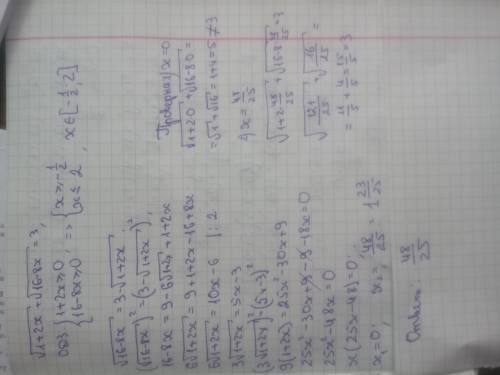 √1+2x + √16-8x = 3,
ОДЗ: { 1+2x ≥ 0
16-8x ≥ 0 , => { x ≥ -1/2
x ≤ 2 , x ∈ [-1/2; 2]
√16-8x = 3 - √1+2x
(√16-8x)² = (3 - √1+2x)²,
16-8x = 9 - 6√1+2x + 1+2x
6√1+2x = 9+1+2x-16+8x
6√1+2x = 10x - 6 |: 2
3√1+2x = 5x-3
(3√1+2x)² = (5x-3)²
9(1+2x) = 25x² - 30x + 9
25x² - 30x + 9 - 9 - 18x = 0
25x² - 48x = 0
x(25x-48) = 0;
x₁ = 0; x₂ = 48/25 = 1 23/25
Ответ: 48/25
x = 0
√1+2·0 + √16-8·0 =
= √1 + √16 = 1+4 = 5 ≠ 3
x = 48/25
√1+2·48/25 + √16-8·48/25 = 3
√121/25 + √16/25 =
= 11/5 + 4/5 = 15/5 = 3